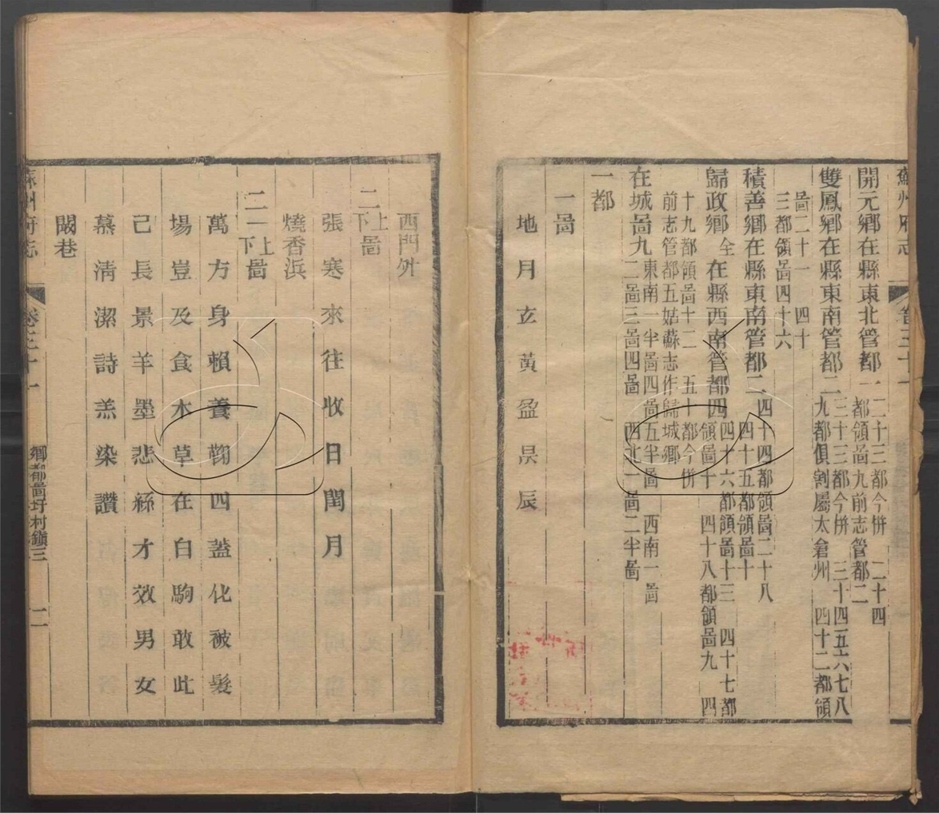 蘇州府志 卷三十一
開元鄉在縣東北管都一
二十三都今併 二十四
都領啚九前志管都二
雙鳳鄉在縣東南管都二
三十三都今併 三十四五六七八
九都俱割屬太倉州 四十二都領
啚二十一 四十
三都領啚四十六
積善鄉在縣東南管都二
四十四都領啚二十八
四十五都領啚十
歸政鄉全在縣西南管都四
四十六都領啚十三 四十七都
領啚十 四十八都領啚九 四
十九都領啚十二 五十都今併
前志管都五姑蘇志作歸城鄉
在城啚九
東南一半啚四啚五半啚 西南一啚
二啚三啚四啚 西北一啚二半啚
一都
一啚
地月玄黃盈昃辰
西門外
二上下啚
張寒來往收日閏月
燒香浜
二一上下啚
萬方身賴養鞠四蓋化被髮
場豈及食木草在白駒敢此
己長景羊墨悲絲才效男女
慕清潔詩羔染讚
巷
蘇州府志 卷三十一 鄉都啚圩村鎮三 二